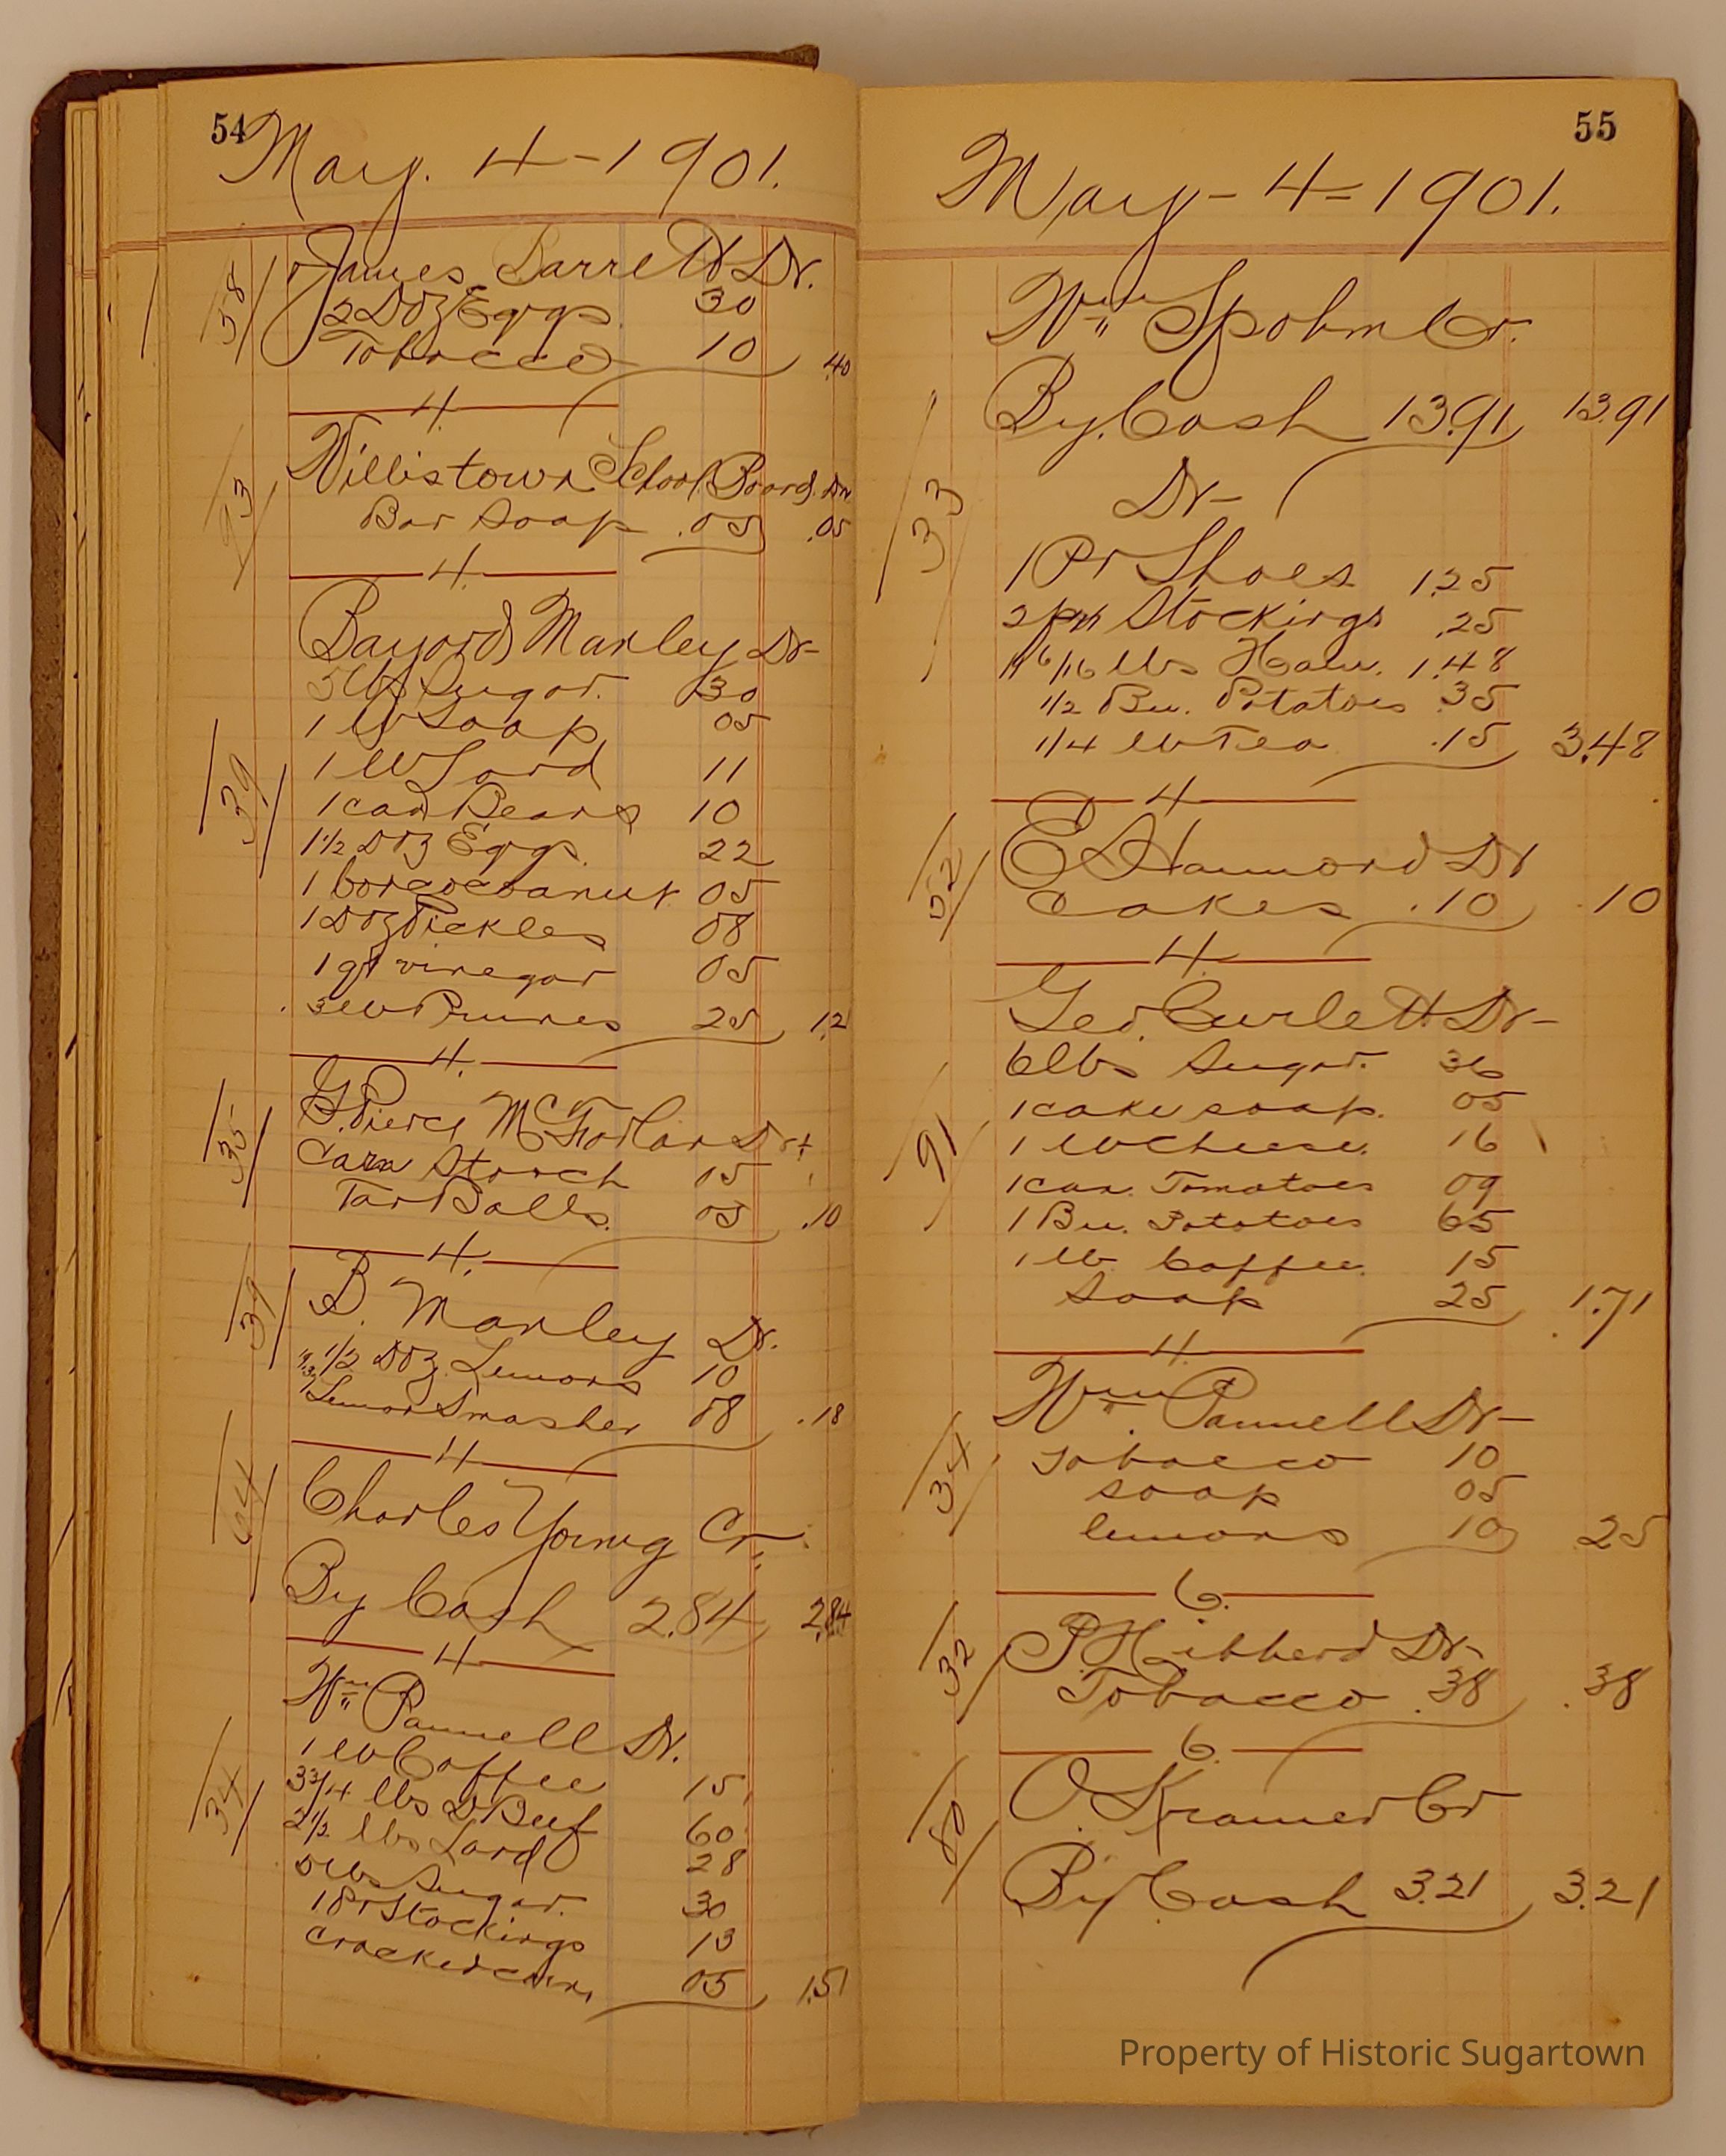 54
May. 4-1901.
58
James Barrett Dr.
2 Doz Eggs 30
Tobacco 10 .40
4.
93
Willistown School Board. Dr.
Bar Soap .05 .05
4.
Bayard Manley Dr-
5lbs Sugar. 30
1 lb Soap 05
39
1 lb Lard 11
1 can Beans 10
1 1/2 Doz Eggs. 22
1 05
1 Doz Pickles 08
1 qt vinegar 05
3 lb Prunes 25 1.2
4.
35
G. Pierce McFarlan Dr
Corn Starch 05
Tar Balls. 05 .10
4.
39
B. Manley Dr.
1/2 Doz. Lemons 10
1 Lemon Smasher 08 .18
4
64
Charles Young Cr.
By Cash 2.84 2.84
4
Wm Pannell Dr.
34
1 lb Coffee 15
3 3/4 lbs D Beef 60
2 1/2 lbs Lard 28
5 lbs Sugar. 30
1 Pr Stockings 13
cracked corn 05 1.51
55
May-4-1901.
Wm Spohn Cr.
By. Cash 13.91 13.91
33
Dr-
1 Pr Shoes 1.25
2 pr Stockings .25
lbs Ham. 1.48
1/2 Bu. Potatoes .35
1/4 lb Tea .15 3.48
4
52
E Hammond Dr
Cakes .10 .10
4.
Geo. Curlett Dr-
6lbs Sugar. 36
1 cake soap. 05
91
1 lb Cheese. 16
1 can. Tomatoes 09
1 Bu. Potatoes 65
1 lb. Coffee. 15
Soap 25 1.71
4.
Wm Pannell Dr-
34
Tobacco 10
soap 05
lemons 10 25
6.
32
P Hibberd Dr-
Tobacco .38 .38
6.
80
O. Kramer Cr
By Cash 3.21 3.21
Property of Historic Sugartown